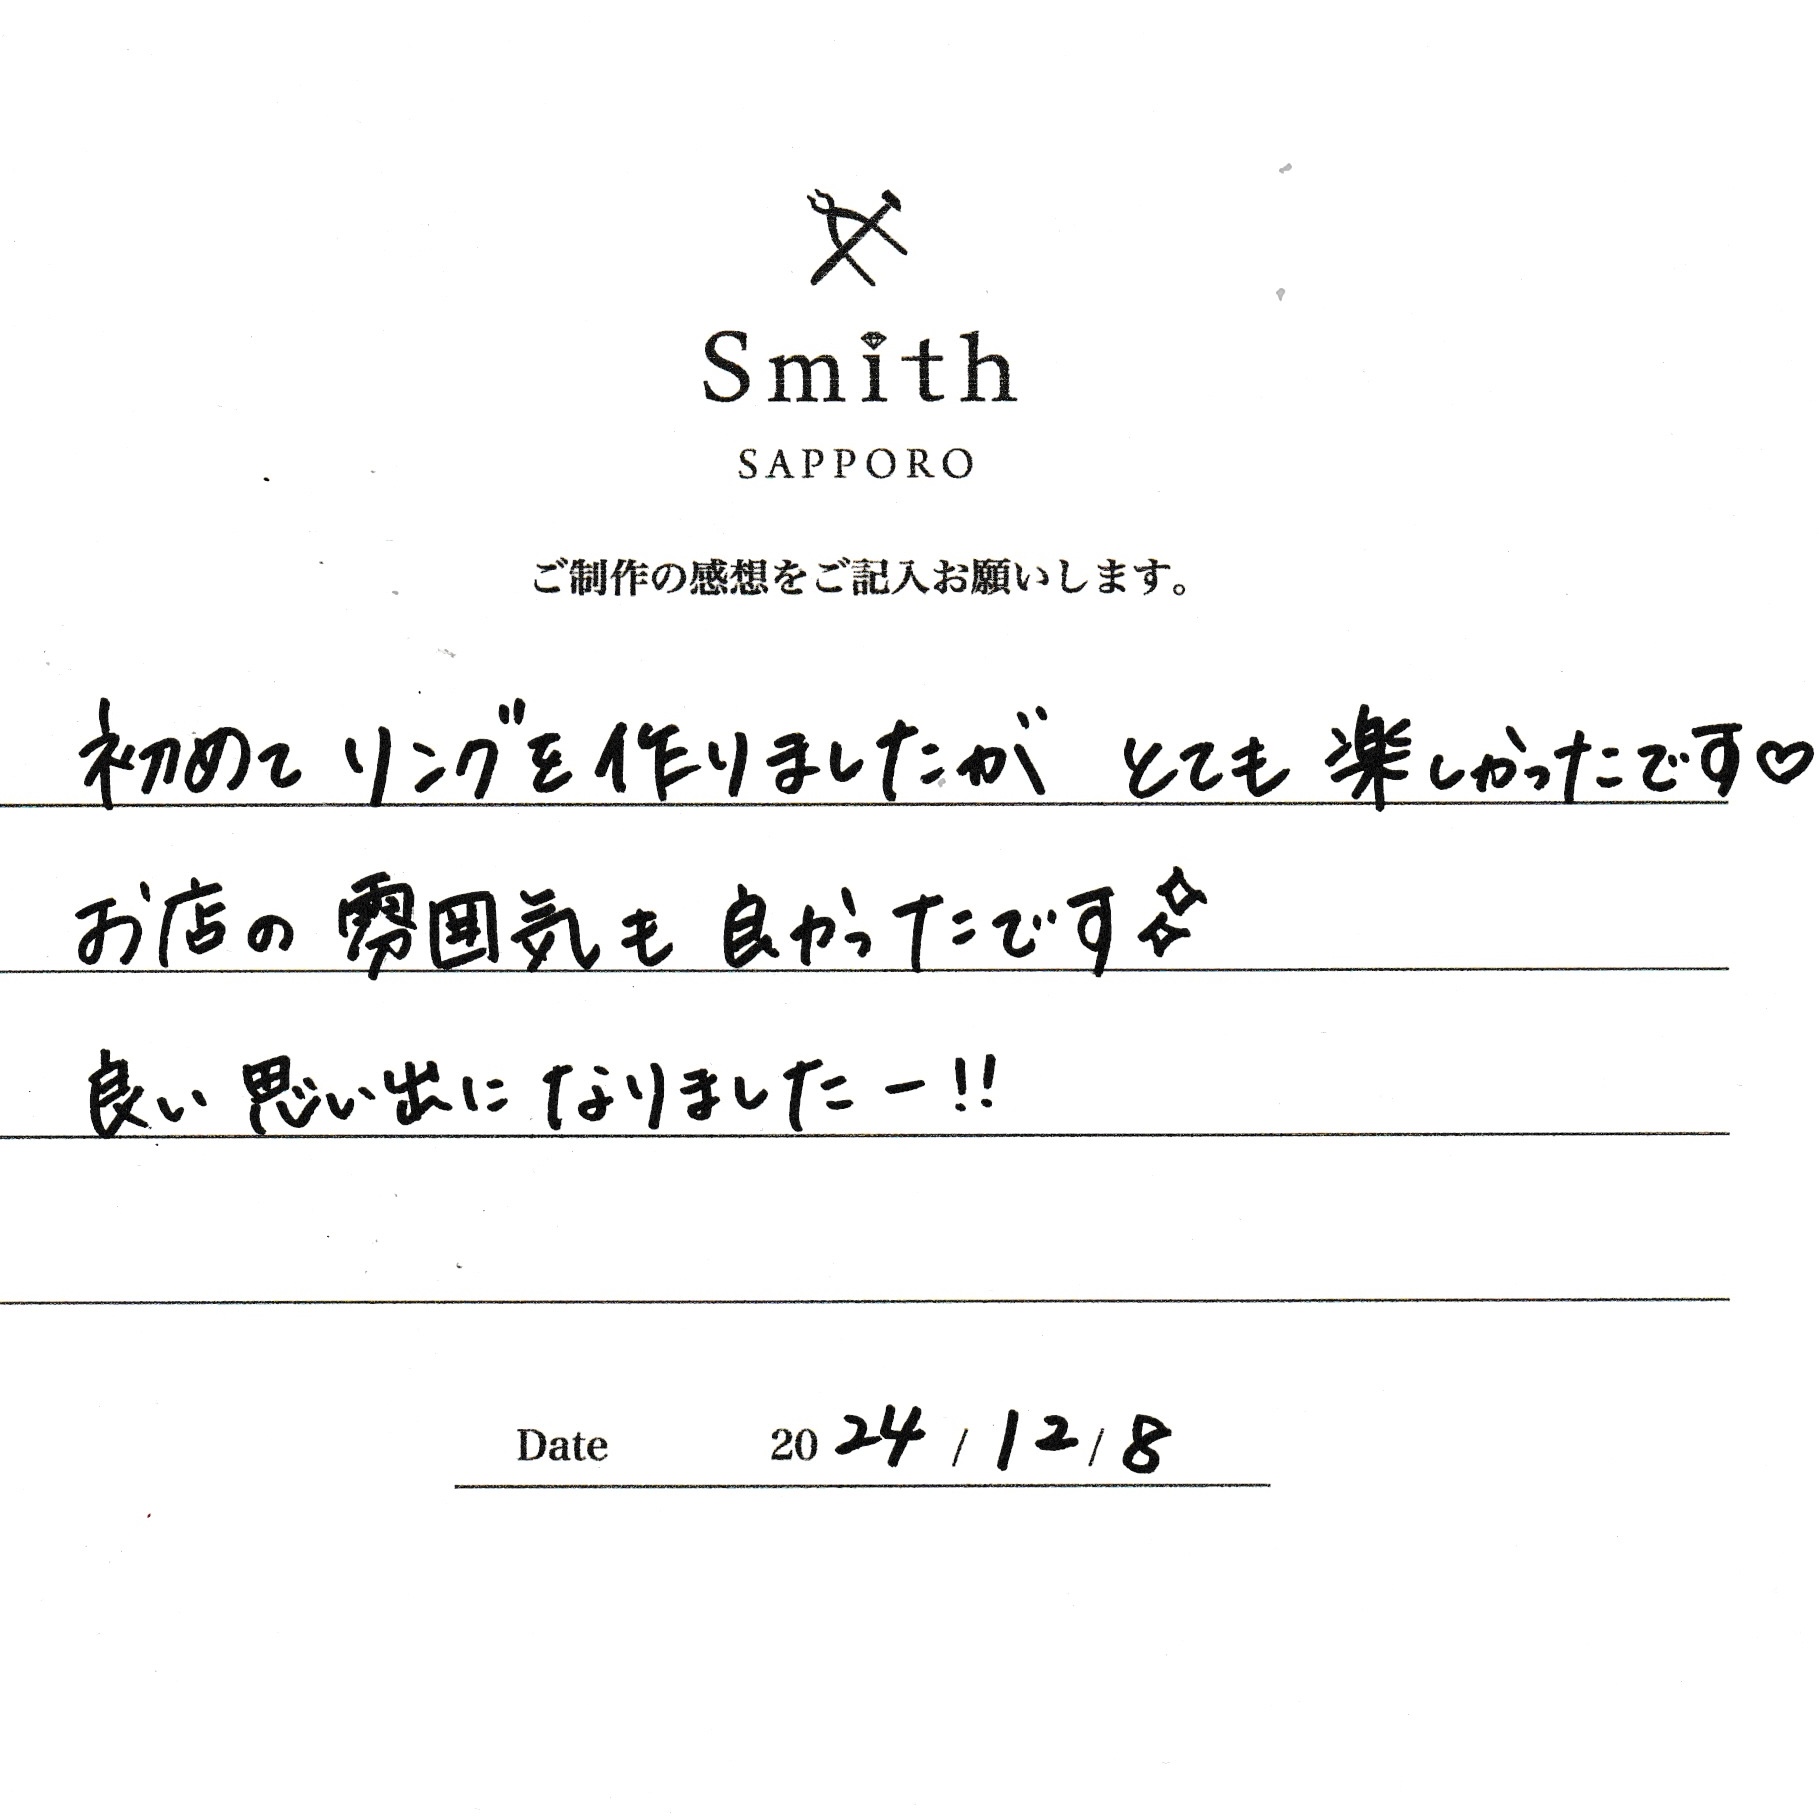 Smith
SAPPORO
ご制作の感想をご記入お願いします。
初めて リングを作りましたが とても 楽しかったです♡
お店の 雰囲気も 良かったです✨
良い 思い出に なりましたー!!
Date 2024/12/8